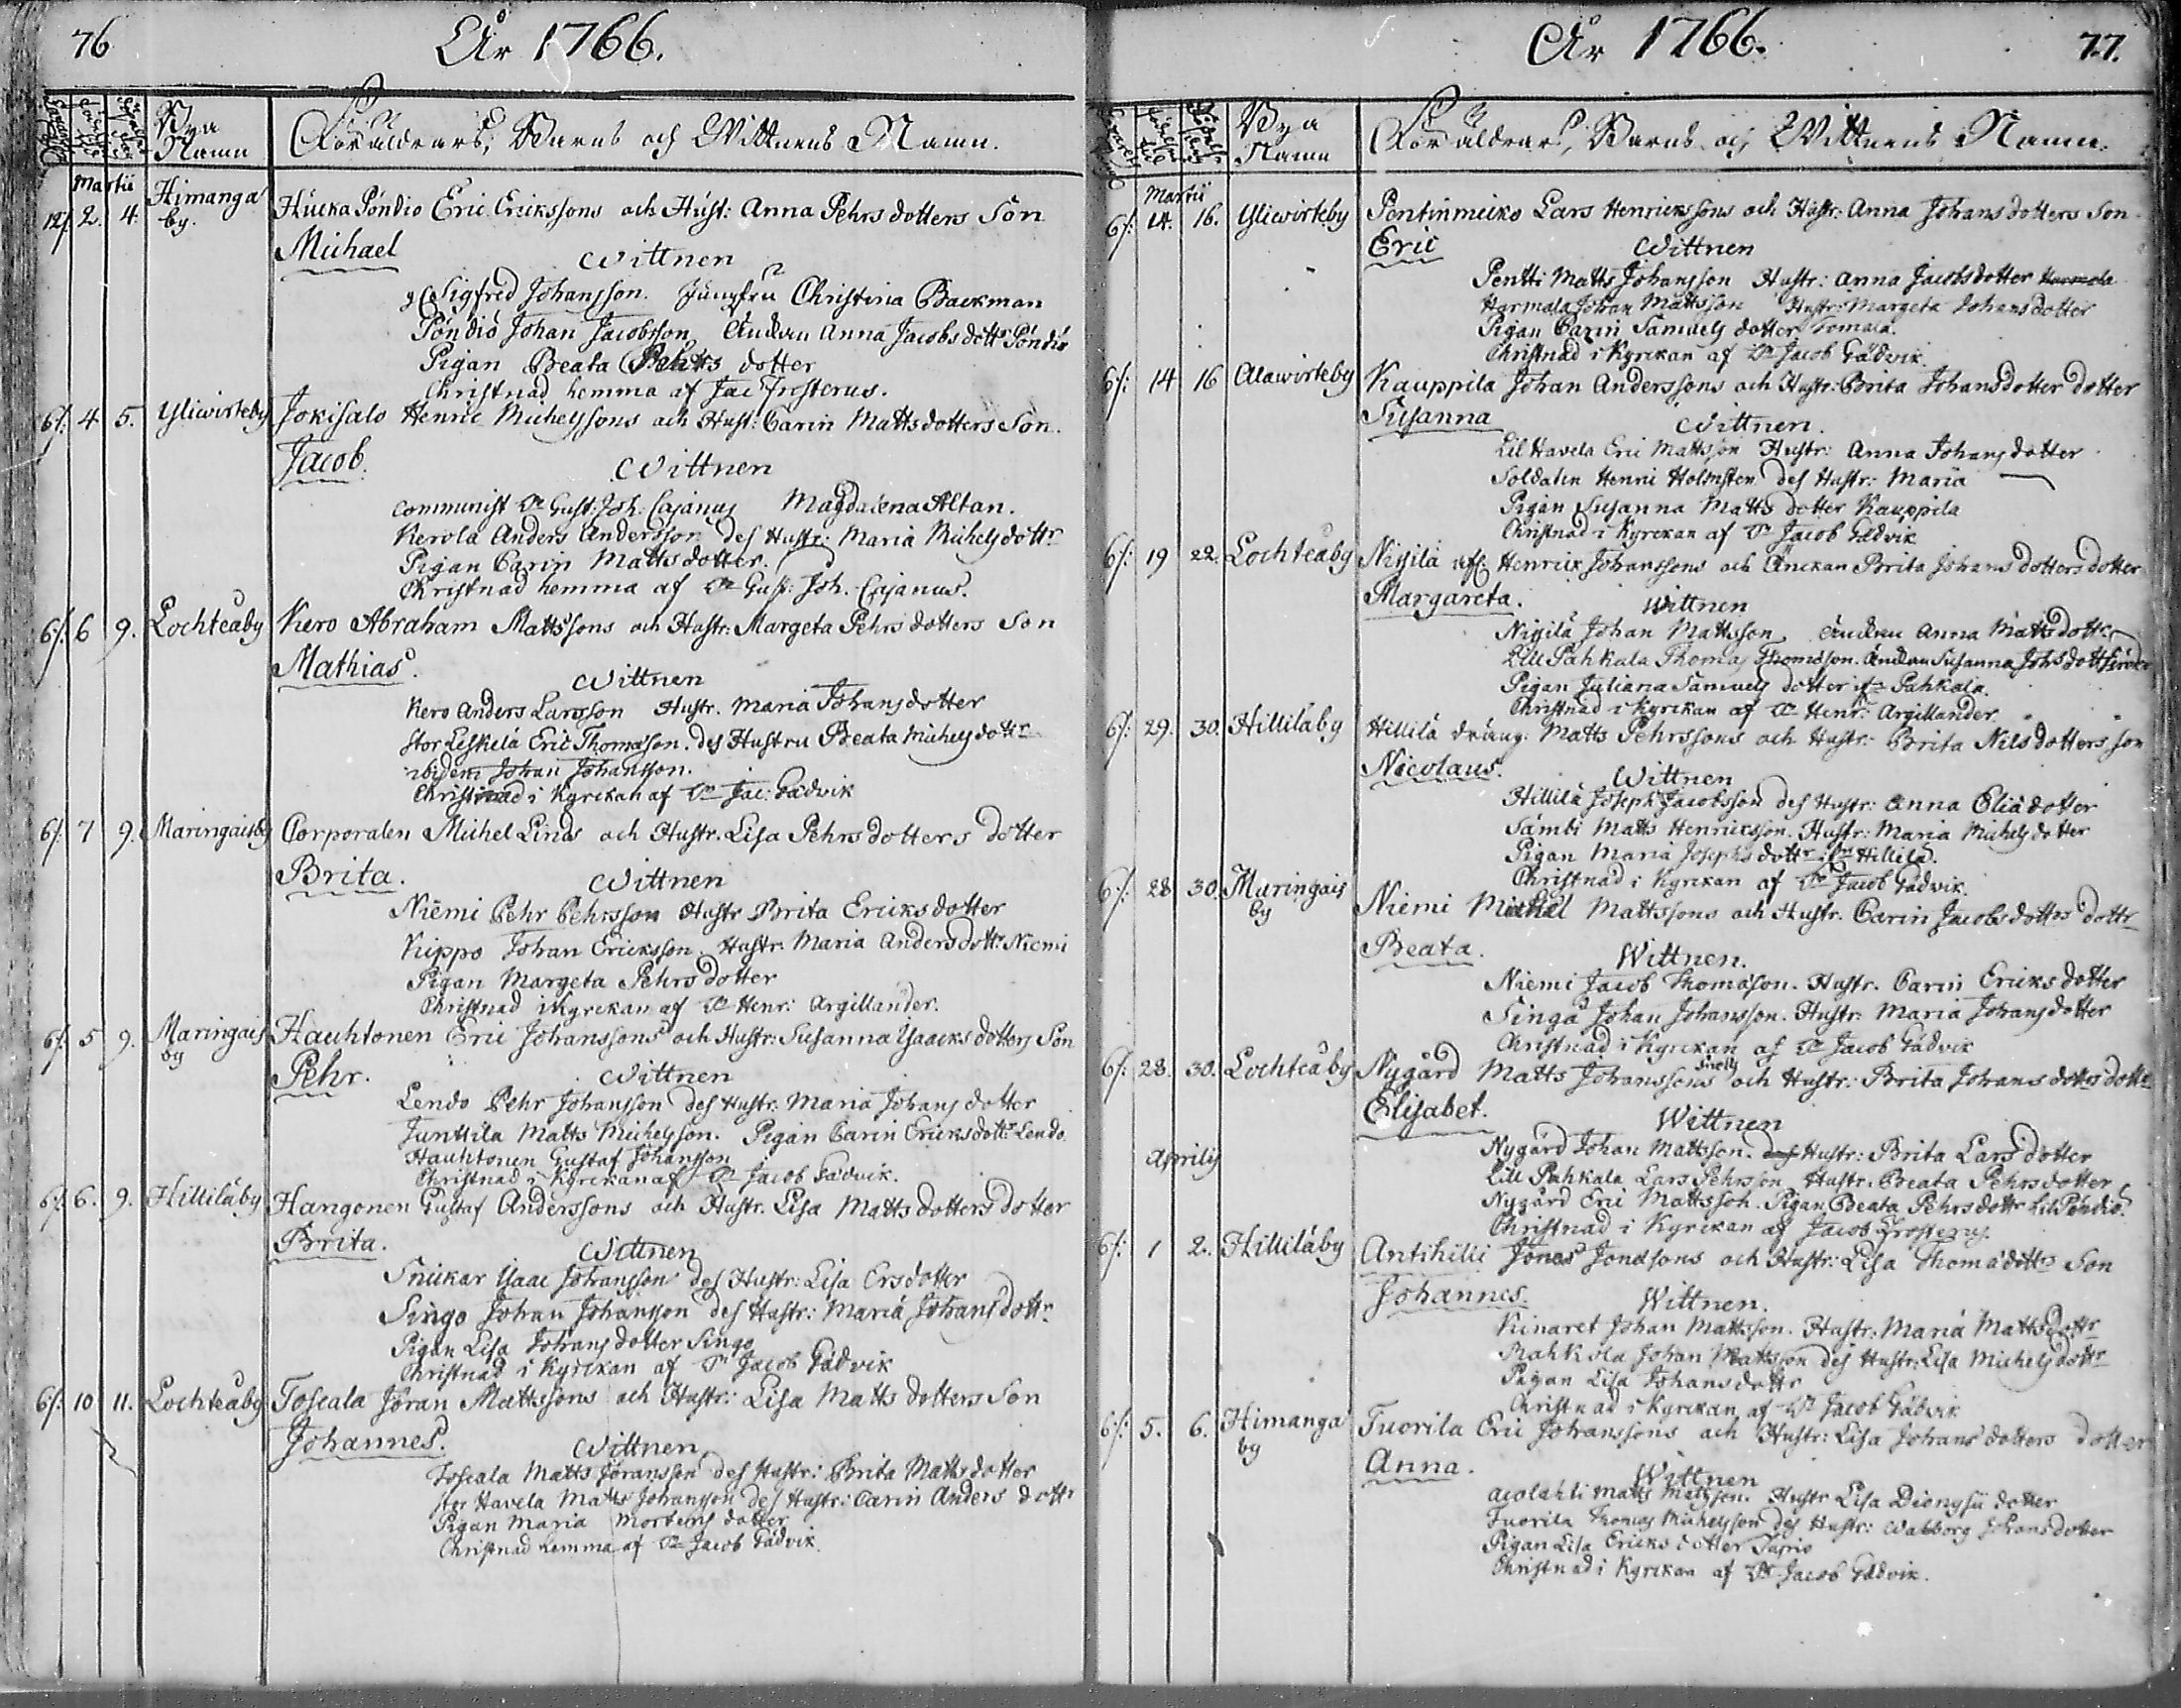 76
År 1766.
Bya
Namn
Föräldrars, Barns och Wittnens Namn.
Martii
12/. 2. 4. Himanga by. Hucka Pöndiö Eric Erickssons och Hust: Anna Pehrs dotters Son
Michael
Wittnen
Sigfred Johansson. Jungfru Christina Backman
Pöndiö Johan Jacobsson Änckan Anna Jacobs dottr Pöndiö
Pigan Beata dotter
Christnad hemma af Jac Frosterus.
6/. 4. 5. Yliwirteby Jokisalo Henric Michelssons och Hust: Carin Matts dotters Son.
Jacob.
Wittnen
communist Dn Gust: Joh. Cajanus Magdalena Altan.
Kerola Anders Andersson des Hustr: Maria Michels dottr
Pigan Carin Matts dotter.
Christnad hemma af Dn Gust: Joh. Cajanus.
6/. 6 9. Lochteåby Kero Abraham Mattssons och Hustr: Margeta Pehrs dotters Son
Mathias.
Wittnen
Kero Anders Larsson Hustr. Maria Johans dotter
Stor Leskelä Eric Thomasson. des Hustru Beata Michels dottr
ibidem Johan Johansson.
Christnad i Kyrckan af Dn Jac: Gådvik
6/. 7 9. Maringaisby Corporalen Michel Linds och Hustr. Lisa Pehrs dotters dotter
Brita.
Wittnen
Niemi Pehr Pehrsson Hustr Brita Ericks dotter
Kippo Johan Ericksson Hustr: Maria Anders dottr Niemi
Pigan Margeta Pehrs dotter
Christnad i Kyrckan af Dn Henr: Argillander.
6/. 5 9. Maringais by Hauhtonen Eric Johanssons och Hustr: Susanna Ysaacks dotters Son
Pehr.
Wittnen
Lendo Pehr Johansson des Hustr: Maria Johans dotter
Junttila Matts Michelsson. Pigan Carin Ericks dottr Lendo
Hauhtonen Gustaf Johansson
Christnad i Kyrckan af Dn Jacob Gådvik.
6/. 6. 9. Hilliläby Hangonen Gustaf Anderssons och Hustr. Lisa Matts dotters dotter
Brita.
Wittnen
Snickar Ysaac Johansson des Hustr: Lisa Ers dotter
Singo Johan Johansson des Hustr: Maria Johans dottr
Pigan Lisa Johans dotter Singo
Christnad i Kyrckan af Dn Jacob Gådvik
6/. 10 11. Lochteåby Toscala Jöran Mattssons och Hustr: Lisa Matts dotters Son
Johannes.
Wittnen
Toscala Matts Jöransson des Hustr: Brita Matts dotter
Stor Havela Matts Johansson des Hustr: Carin Anders dottr
Pigan Maria Mortens dotter
Christnad hemma af Dn Jacob Gådvik.
År 1766.
77.
Bya
Namn
Föräldrars, Barns och Wittnens Namn.
Martii
6/: 14. 16. Yliwirteby Pentinmicko Lars Henrickssons och Hustr: Anna Johans dotters Son
Eric
Wittnen
Pentti Matts Johansson Hustr: Anna Jacobs dotter Harmala
Harmala Johan Mattsson Hustr: Margeta Johans dotter
Pigan Carin Samuels dotter Tomala.
Christnad i Kyrckan af Dn Jacob Gådvik.
6/: 14 16 Alawirteby Kauppila Johan Anderssons och Hustr: Brita Johans dotter dotter
Susanna
Wittnen.
Lil Havela Eric Mattsson Hustr: Anna Johans dotter
Soldaten Henric Holmsten des Hustr: Maria
Pigan Susanna Matts dotter Kauppila
Christnad i Kyrckan af Dn Jacob Gådvik
6/: 19 22. Lochteåby Niisilä Henrick Johanssons och Änckan Brita Johans dotters dotter
Margareta.
Wittnen
Niisilä Johan Mattsson Änckan Anna Matts dottr
Lill Pahkala Thomas Thomasson. Änckan Susanna Johs dottr
Pigan Juliana Samuels dotter Pahkala.
Christnad i Kyrckan af Dn Henr: Argillander.
6/: 29. 30. Hilliläby Hillilä dräng: Matts Pehrssons och Hustr: Brita Nils dotters Son
Nicolaus.
Wittnen
Hillilä Joseph Jacobsson des Hustr: Anna Eliä dotter
Sämbi Matts Henricksson. Hustr: Maria Michels dotter
Pigan Maria Josephs dottr Hillilä.
Christnad i Kyrckan af Dn Jacob Gådvik.
6/: 28 30. Maringais by Niemi Michel Mattssons och Hustr. Carin Jacobs dotters dottr
Beata.
Wittnen.
Niemi Jacob Thomasson. Hustr. Carin Ericks dotter
Singå Johan Johansson. Hustr: Maria Johans dotter
Christnad i Kyrckan af Dn Jacob Gådvik
6/: 28. 30. Lochteåby Nygård Matts Johanssons Snells och Hustr: Brita Johans dotters dottr
Elisabet.
Wittnen
Nygård Johan Mattsson. des Hustr: Brita Lars dotter
Lill Pahkala Lars Pehrsson Hustr. Beata Pehrs dotter
Nygård Eric Mattsson. Pigan Beata Pehrs dottr Lil Pöndiö.
Christnad i Kyrckan af Jacob Frosterus.
Aprilis
6/: 1 2. Hilliläby Antihilli Jonas Jonassons och Hustr: Lisa Thomä dottrs Son
Johannes.
Wittnen.
Kinaret Johan Mattsson. Hustr: Maria Matts dottr
Mahkola Johan Mattsson des Hustr: Lisa Michels dottr
Pigan Lisa Johans dottr
Christnad i Kyrckan af Dn Jacob Gådvik
6/: 5. 6. Himanga by Tuorila Eric Johanssons och Hustr: Lisa Johans dotters dotter
Anna.
Wittnen
Matts Matsson. Hustr Lisa Dionysii dotter
Tuorila Thomas Michelsson des Hustr: Walborg Johans dotter
Pigan Lisa Ericks dotter
Christnad i Kyrckan af Dn Jacob Gådvik.